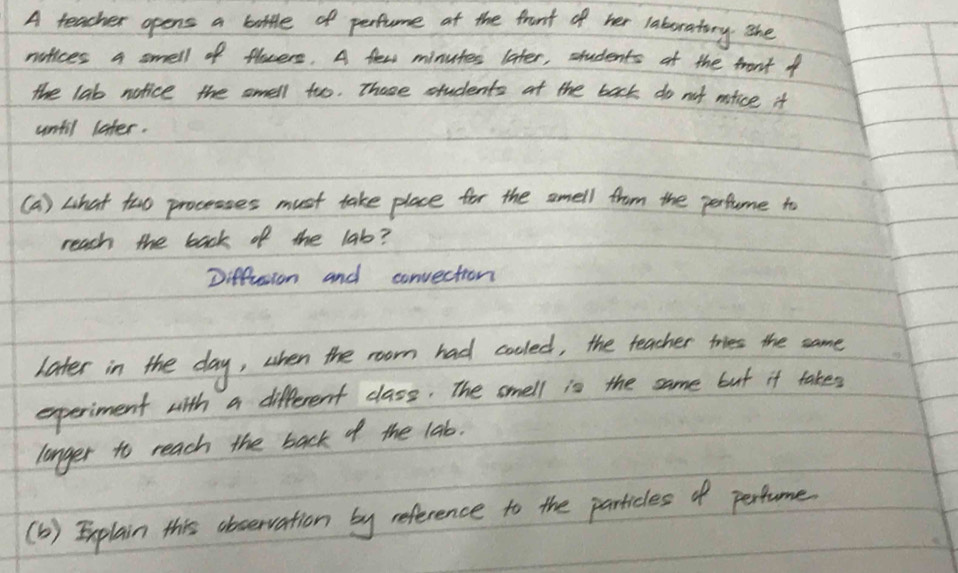 A teacher opens a bottle of perfume at the front of her laboratory. She
notices a smell of flowers. A few minutes later, students at the front of
the lab notice the smell too. Those students at the back do not notice it
until later.
(a) What two processes must take place for the smell from the perfume to
reach the back of the lab?
Diffusion and convection
Later in the day, when the room had cooled, the teacher tries the same
experiment with a different class. The smell is the same but it takes
longer to reach the back of the lab.
(b) Explain this observation by reference to the particles of perfume